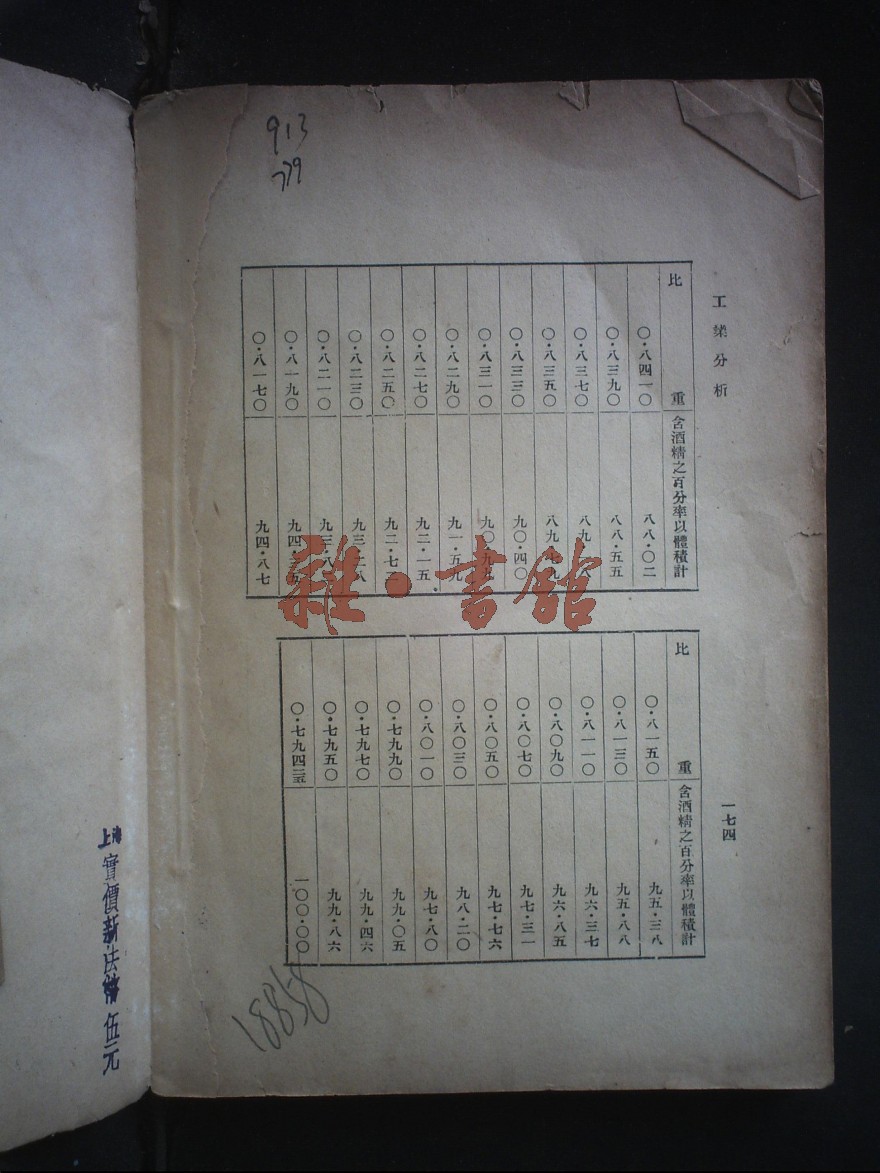 913
779
工業分析
一七四
比重 含酒精之百分率以體積計
〇·八四一〇 八八·〇二
〇·八三九〇 八八·五五
〇·八三七〇 八九·
〇·八三五〇 八九·七九
〇·八三三〇 九〇·四〇
〇·八三一〇 九〇·九九
〇·八二九〇 九一·五九
〇·八二七〇 九二·一五
〇·八二五〇 九二·七
〇·八二三〇 九三·二八
〇·八二一〇 九三·八
〇·八一九〇 九四·三五
〇·八一七〇 九四·八七
比重 含酒精之百分率以體積計
〇·八一五〇 九五·三八
〇·八一三〇 九五·八八
〇·八一一〇 九六·三七
〇·八〇九〇 九六·八五
〇·八〇七〇 九七·三一
〇·八〇五〇 九七·七六
〇·八〇三〇 九八·二〇
〇·八〇一〇 九七·八〇
〇·七九九〇 九九·〇五
〇·七九七〇 九九·四六
〇·七九五〇 九九·八六
〇·七九四三五 一〇〇·〇〇
雜·書館
18858
上海實價新法幣伍元